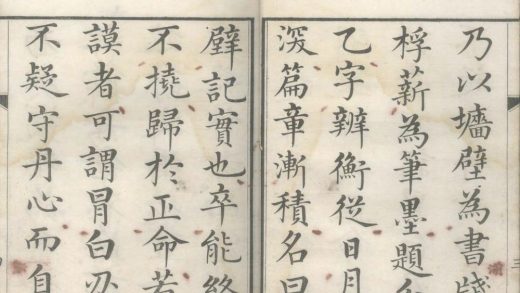 乃以墻壁為書牋
桴薪為筆墨題
乙字辦衡從日月
深篇章漸積名曰
壁記實也卒能
不撓歸於正命若
謨者可謂冐白刃
不疑守丹心而自